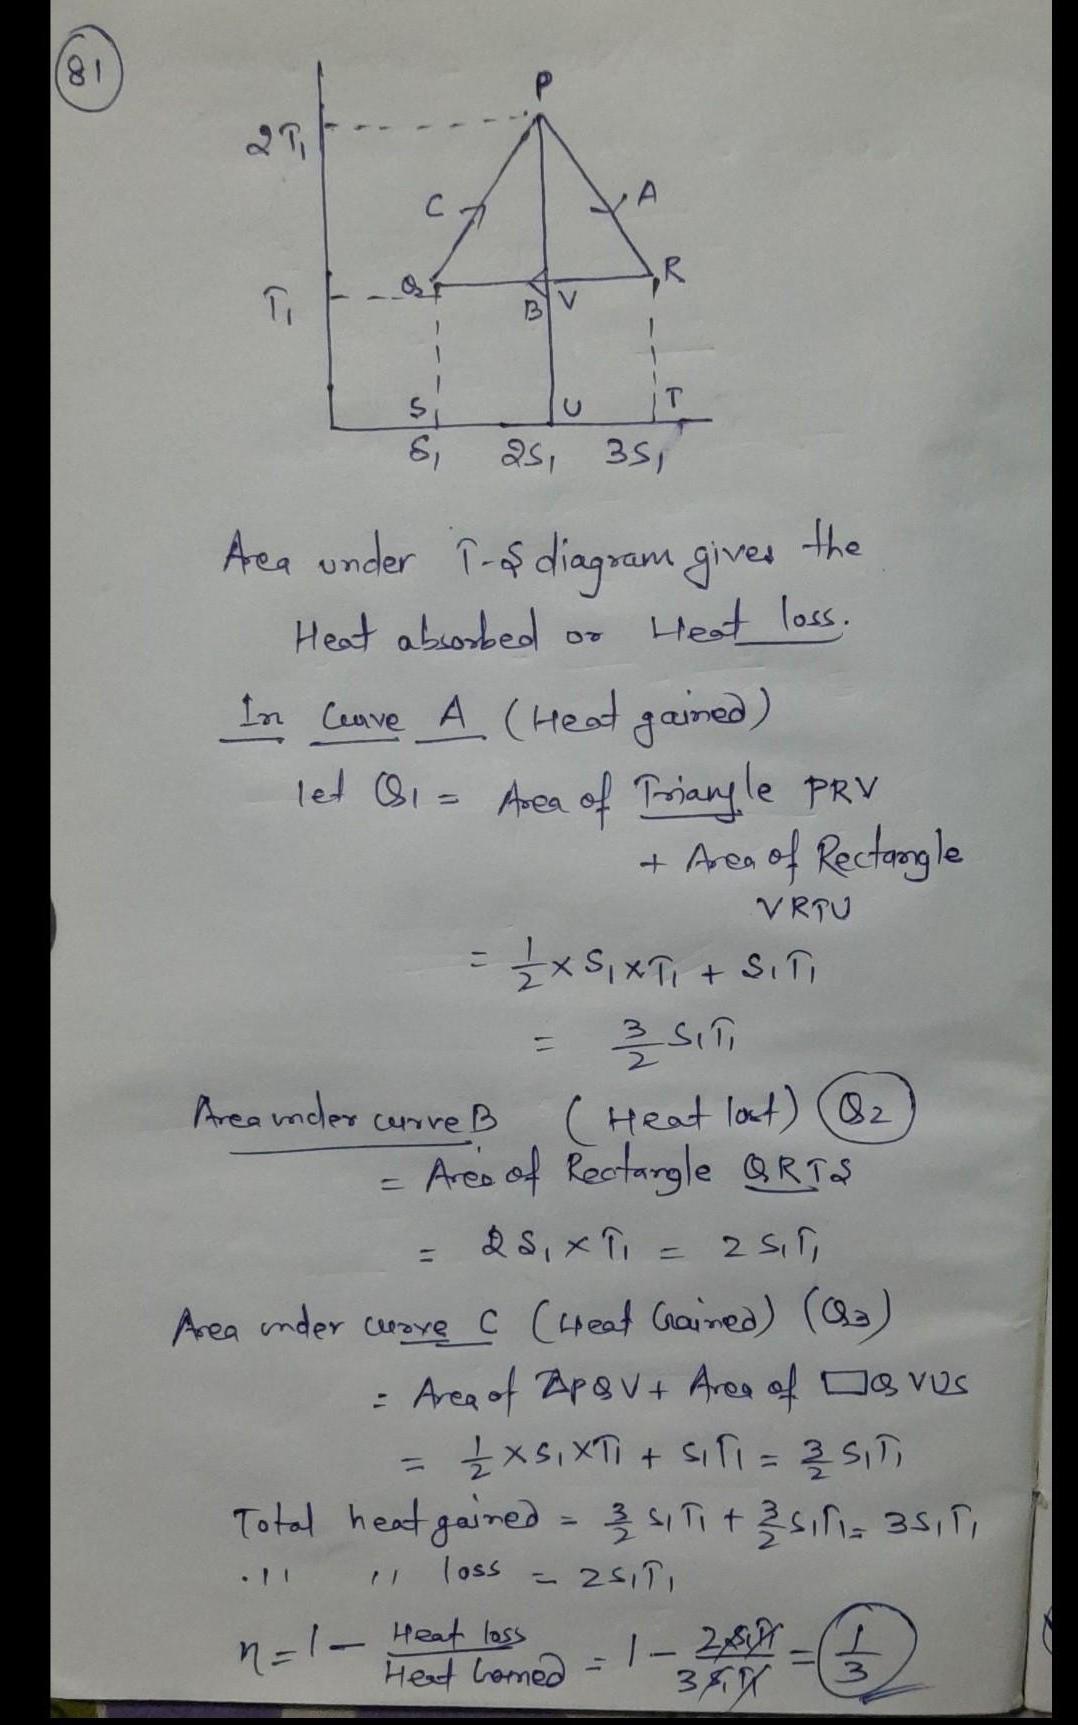 81
P
2T₁
C
A
Q
R
T₁
B V
S U T
S₁ 2S₁ 3S₁
Area under T-S diagram gives the
Heat absorbed or Heat loss.
In Curve A (Heat gained)
let Q₁ = Area of Triangle PRV
+ Area of Rectangle
VRTU
= 1/2 × S₁ × T₁ + S₁T₁
= 3/2 S₁T₁
Area under curve B (Heat lost) Q2
= Area of Rectangle QRTS
= 2S₁ × T₁ = 2S₁T₁
Area under curve C (Heat Gained) (Q3)
= Area of ΔPQV + Area of ▭QVUS
= 1/2 × S₁ × T₁ + S₁T₁ = 3/2 S₁T₁
Total heat gained = 3/2 S₁T₁ + 3/2 S₁T₁ = 3S₁T₁
,, ,, loss = 2S₁T₁
η = 1 - Heat loss / Heat Gained = 1 - 2S₁T₁ / 3S₁T₁ = 1/3